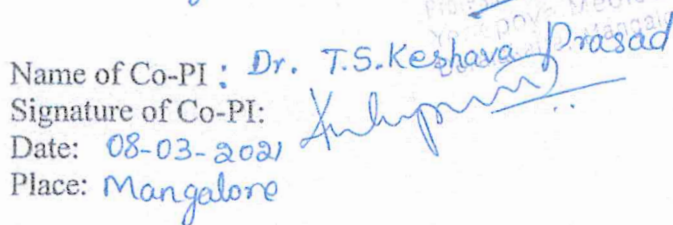 Name of Co-PI : Dr. T.S. Keshava Prasad
Signature of Co-PI:
Date: 08-03-2021
Place: Mangalore